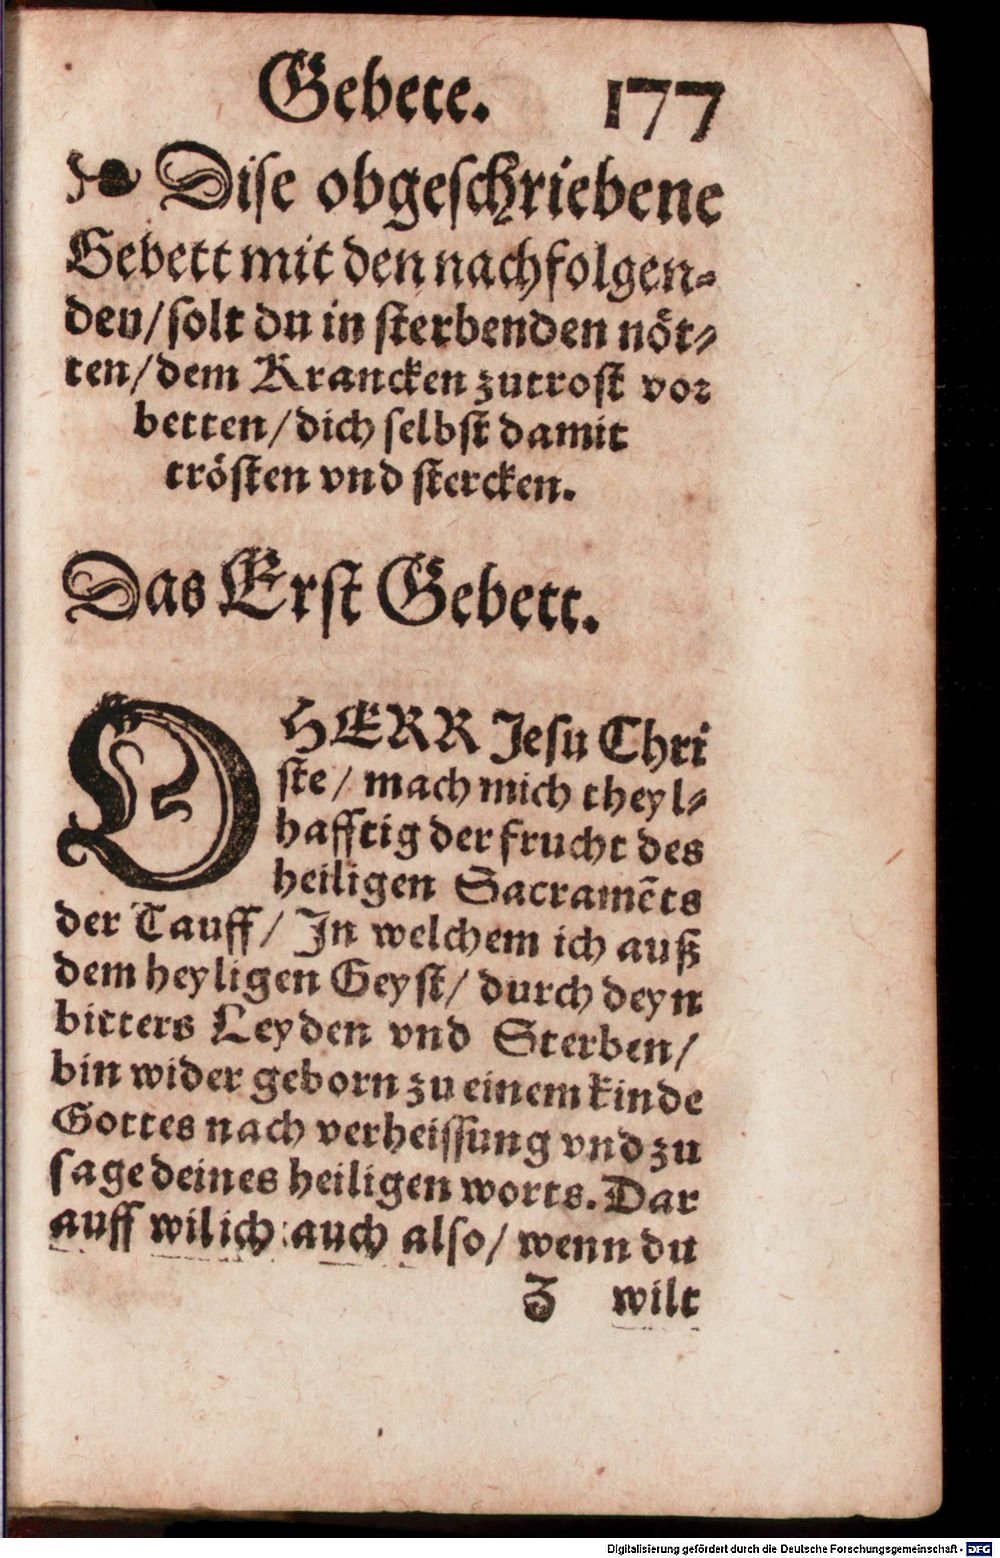 Gebete. 177
❧ Dise obgeschriebene
Gebett mit den nachfolgen⸗
den/solt du in sterbenden nöt⸗
ten/dem Krancken zutrost vor
betten/dich selbst damit
trösten vnd stercken.
Das Erst Gebett.
O HERR Jesu Chri
ste/ mach mich theyl⸗
hafftig der frucht des
heiligen Sacramẽts
der Tauff/ In welchem ich auß
dem heyligen Geyst/ durch deyn
bitters Leyden vnd Sterben/
bin wider geborn zu einem kinde
Gottes nach verheissung vnd zu
sage deines heiligen worts. Dar
auff wil ich auch also/ wenn du
Z wilt
Digitalisierung gefördert durch die Deutsche Forschungsgemeinschaft - DFG